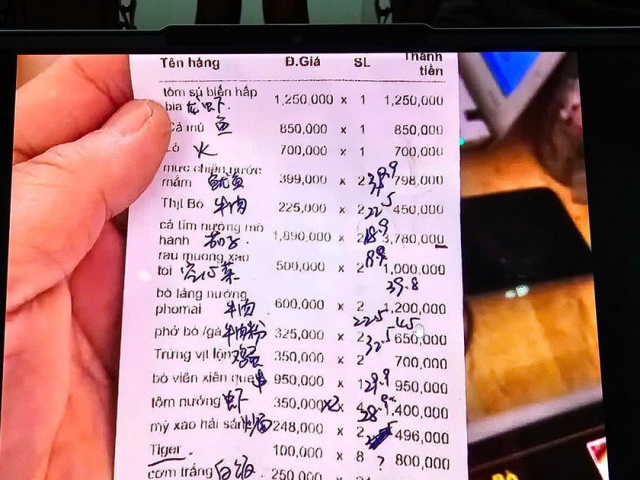 Tên hàng Đ.Giá SL Thành tiền
tôm sú biển hấp
bia 龙虾. 1,250,000 x 1 1,250,000
Cá mú 鱼 850,000 x 1 850,000
火 700,000 x 1 700,000
mực chiên nước
mắm 鱿鱼 399,000 x 2 798,000
Thịt Bò 牛肉 225,000 x 2 22.5 450,000
cà tím nướng mỡ
hành 茄子 1,890,000 x 2 3,780,000
rau muống xào
tỏi 空心菜 500,000 x 2 1,000,000
39.8
bò lảng nướng
phomai 牛肉 600,000 x 2 1,200,000
22.5 45
phở bò /gà 牛肉粉 325,000 x 2 32.5 650,000
Trứng vịt lộn 鸡蛋 350,000 x 2 700,000
bò viên xiên que 串 950,000 x 1 950,000
tôm nướng 虾 350,000 x2 x 1,400,000
mỳ xào hải sản 248,000 x 2 496,000
Tiger 100,000 x 8 ? 800,000
cơm trắng 白饭 250,000